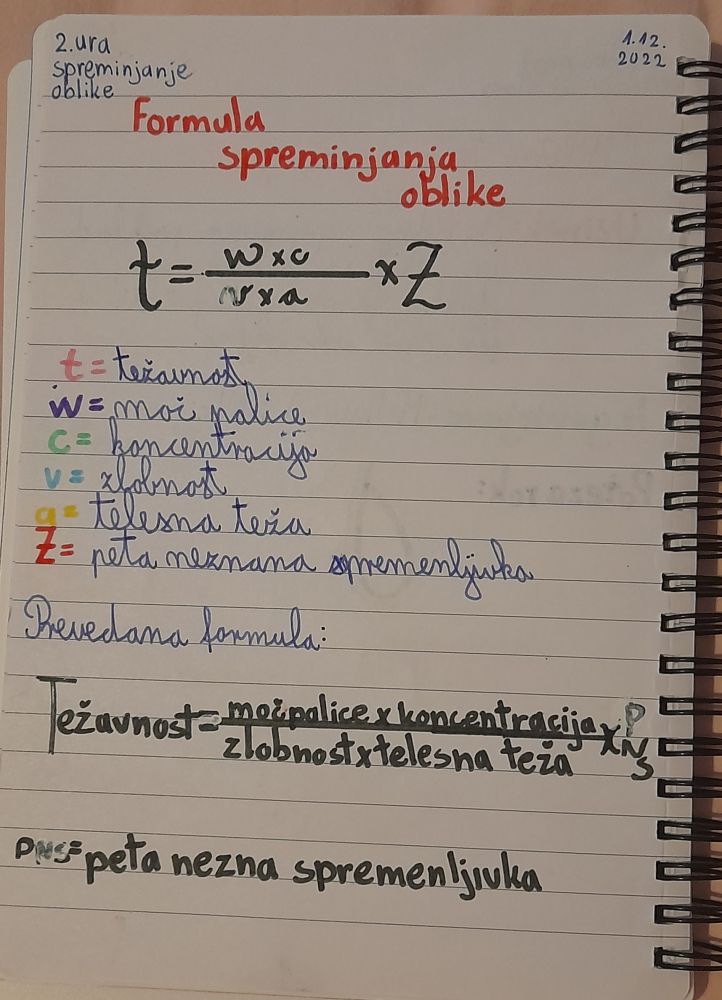 2.ura
spreminjanje
oblike
1.12.
2022
Formula
spreminjanja
oblike
t = w x c / v x a x Z
t = težavnost
w = moč palice
c = koncentracija
v = zlobnost
a = telesna teža
Z = peta neznana spremenljivka
Prevedana formula:
Težavnost = moč palice x koncentracija / zlobnost x telesna teža x PNS
PNS = peta nezna spremenljivka